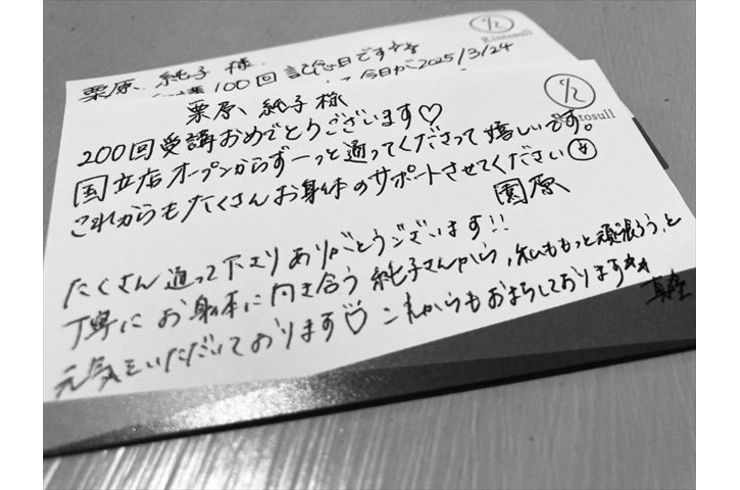 Rintosull
栗原 純子 様
100回記念日です☆☆
今日が2025/3/24
Rintosull
栗原 純子 様
200回受講おめでとうございます♡
国立店オープンからずーっと通ってくださって嬉しいです。
これからもたくさんお身体のサポートさせてください
園原
たくさん通って下さりありがとうございます!!
丁寧にお身体に向き合う純子さんから、私ももっと頑張ろう、と
元気をいただいております♡これからもお待ちしております☆☆